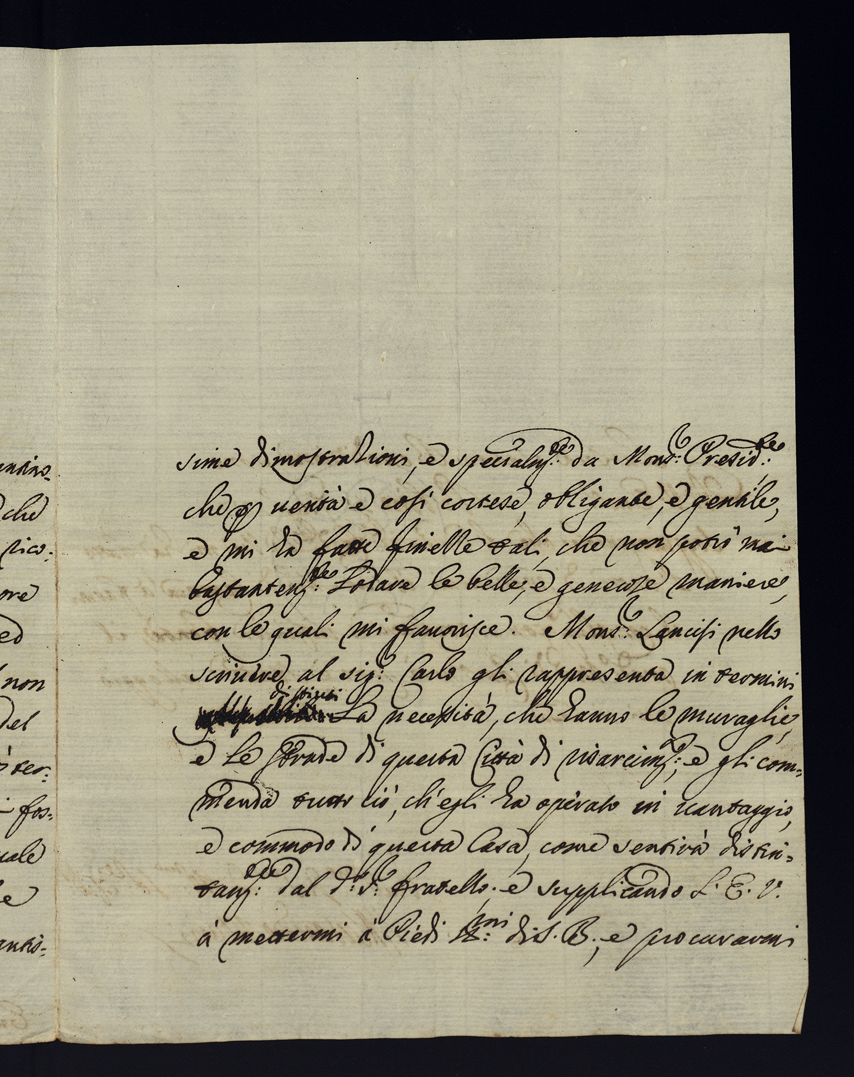 sime dimostrationi, e specialm.te da Mons.r Presid.te
che p verità è così cortese, obligante, e gentile,
e mi ha fatte finezze tali, che non potrò mai
bastantem.te Lodare le belle, e generose maniere,
con le quali mi favorisce. Mons.r Lancisi nello
scrivere al sig.r Carlo gli rappresenta in termini
distinti La necessità, che hanno le muraglie,
e Le strade di questa Città di risarcim.ti, e gli com=
menda tutto ciò, ch'egli ha operato in vantaggio,
e commodo di questa Casa, come sentirà distin=
tam.te dal d.o S.r fratello. e supplicando L'E. V.
à mettermi à Piedi SS.mi di S. B., e procurarmi
che
non
del
fos=
uale